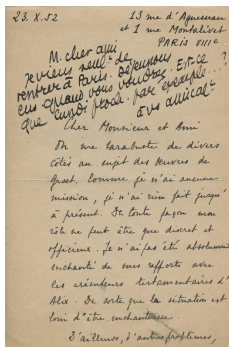 23. X. 52
13 rue d'Aguesseau
et 1 rue Montalivet
PARIS VIIIe
M. cher ami
Je viens seulᵗ de
rentrer à Paris. Déjeunons
ens quand vous voudrez. Est-ce
que lundi par exemple...?
à vs amicalᵗ
Cher Monsieur et Ami
On me tarabuste de divers
côtés au sujet des œuvres de
Comme je n'ai aucune
mission, je n'ai rien fait jusqu'
à présent. De toute façon mon
rôle ne peut être que discret et
officieux. Je n'ai pas été absolument
enchanté de mes rapports avec
les exécuteurs testamentaires d'
Alix. De sorte que la situation est
loin d'être enchanteresse.
D'ailleurs, d'autres problèmes,